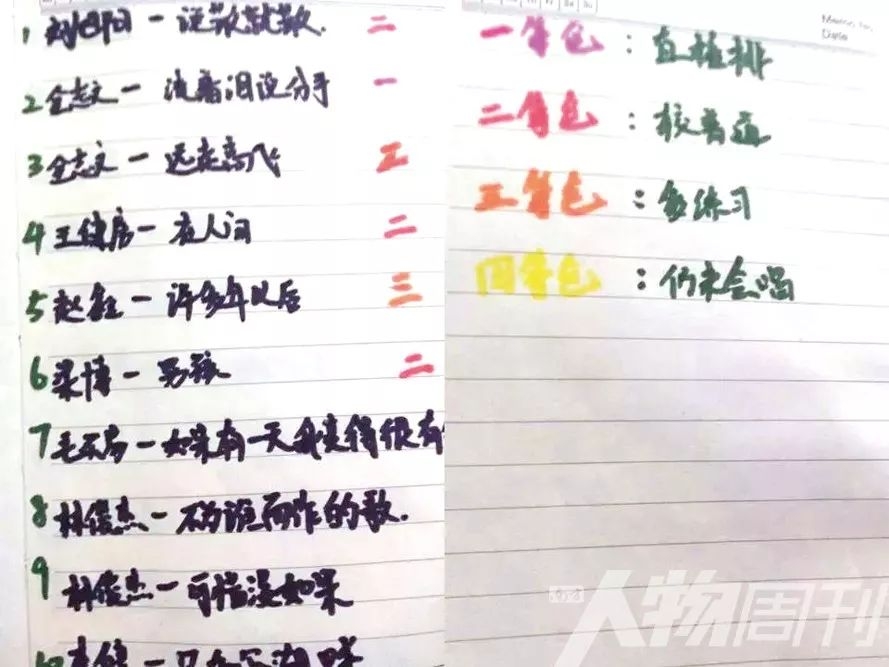 1 — 说散就散. 二
2 全志文 — 流着泪说分手 一
3 全志文 — 远走高飞 三
4 王健房 — 在人间 二
5 赵 — 许多年以后 三
6 梁博 — 男孩 二
7 毛不易 — 如果有一天我变得很有
8 林俊杰 — 不为谁而作的歌.
9 林俊杰 — 可惜没如果
10
Memo No.
Date
一角色：直接排
二角色：较普通
三角色：多练习
四角色：仍未会唱
南方人物周刊